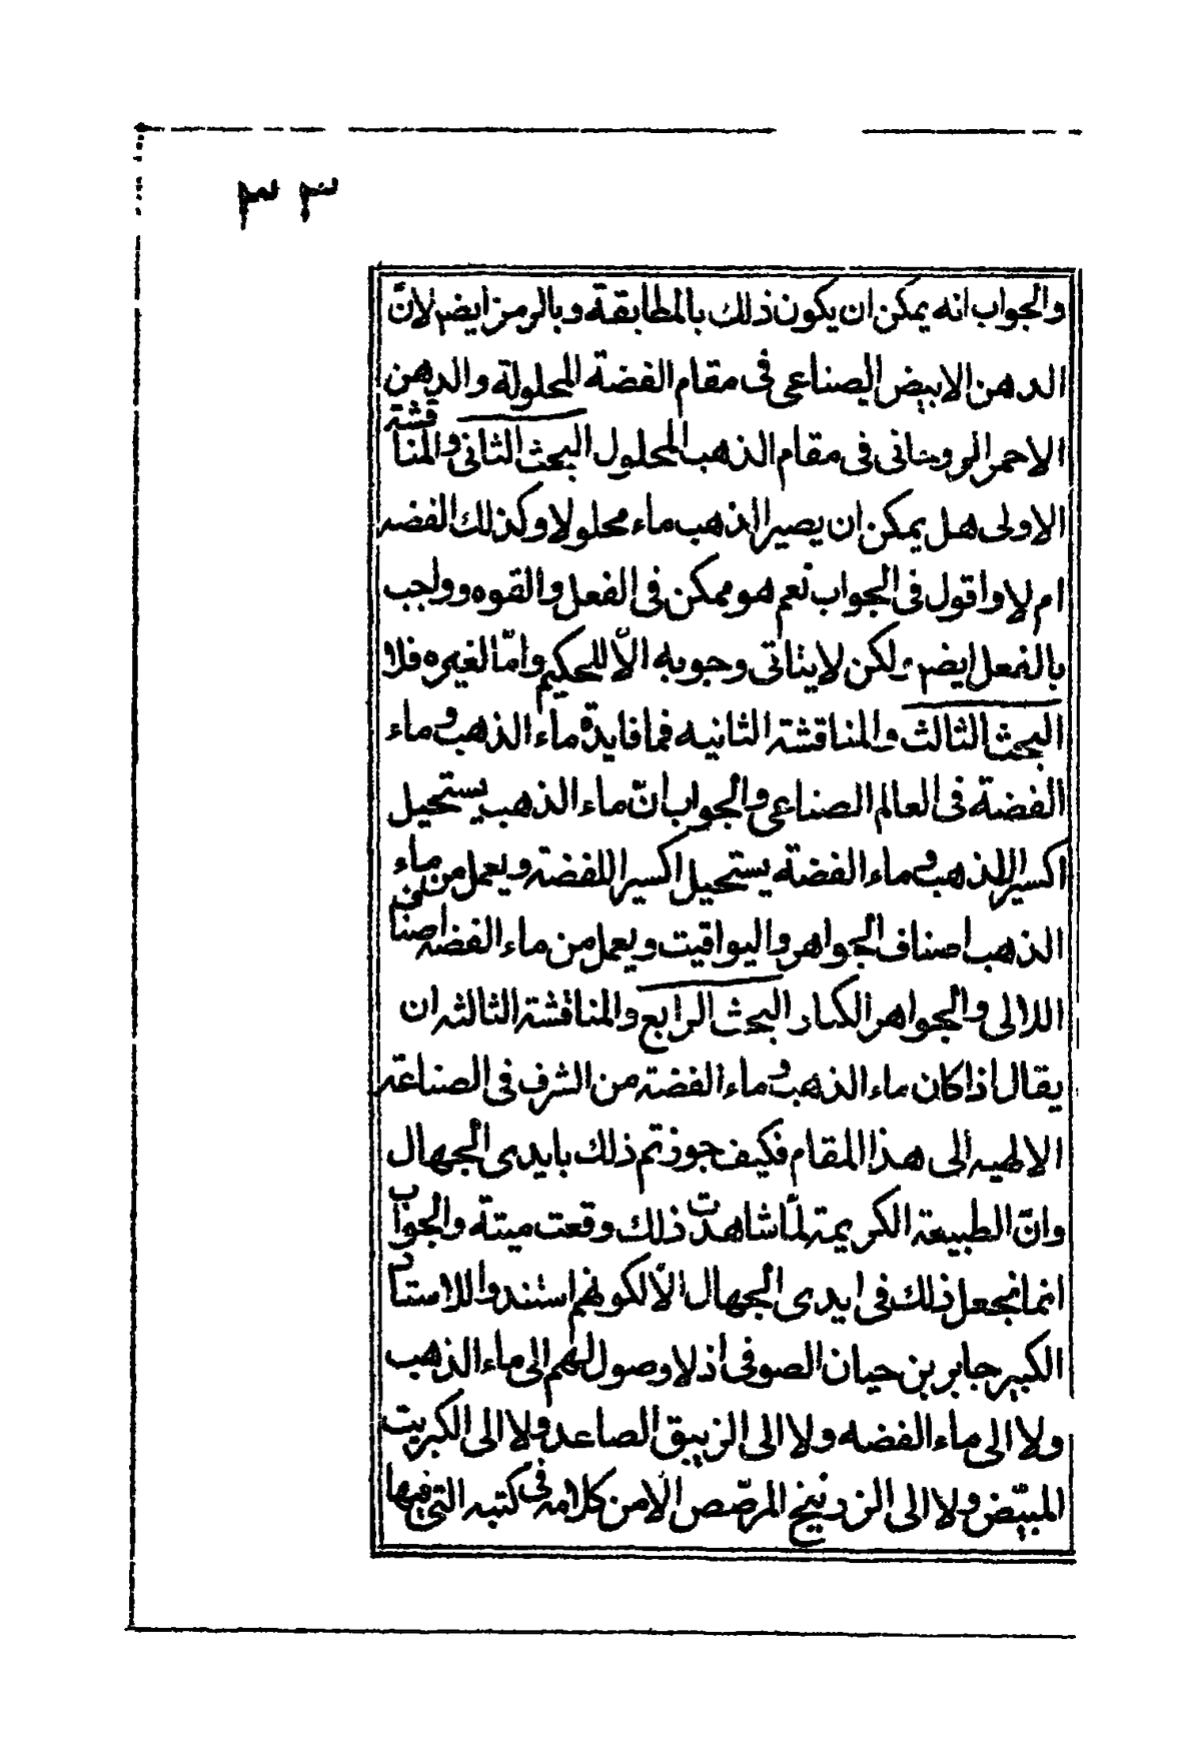 ٣٣
والجواب انه يمكن ان يكون ذلك بالمطابقة وبالرمز ايضم لانّ
الدهن الابيض الصناعى فى مقام الفضة المحلولة والدهن
الاحمر الروحانى فى مقام الذهب المحلول البحث الثانى والمناقشة
الاولى هل يمكن ان يصير الذهب ماء محلولا وكذلك الفضه
ام لا واقول فى الجواب نعم هو ممكن فى الفعل والقوه وواجب
بالفعل ايضم ولكن لا يتاتى وجوبه الاّ للحكيم وامّا لغيره فلا
البحث الثالث والمناقشة الثانيه فما فايدة ماء الذهب وماء
الفضة فى العالم الصناعى والجواب انّ ماء الذهب يستحيل
اكسيرا للذهب وماء الفضة يستحيل اكسيرا للفضة ويعمل من ماء
الذهب اصناف الجواهر واليواقيت ويعمل من ماء الفضه اصناف
اللالى والجواهر الكبار البحث الرابع والمناقشة الثالثه ان
يقال اذا كان ماء الذهب وماء الفضة من الشرف فى الصناعة
الالهيه الى هذا المقام فكيف جوزتم ذلك بايدى الجهال
وانّ الطبيعة الكريمة لمّا شاهدت ذلك وقعت ميتة والجواب
انما نجعل ذلك فى ايدى الجهال الاّ لكونهم استندوا للاستاد
الكبير جابر بن حيان الصوفى اذ لا وصول لهم الى ماء الذهب
ولا الى ماء الفضه ولا الى الزيبق الصاعد ولا الى الكبريت
المبيّض ولا الى الزرنيخ المرصّص الاّ من كلامه فى كتبه التى فيها